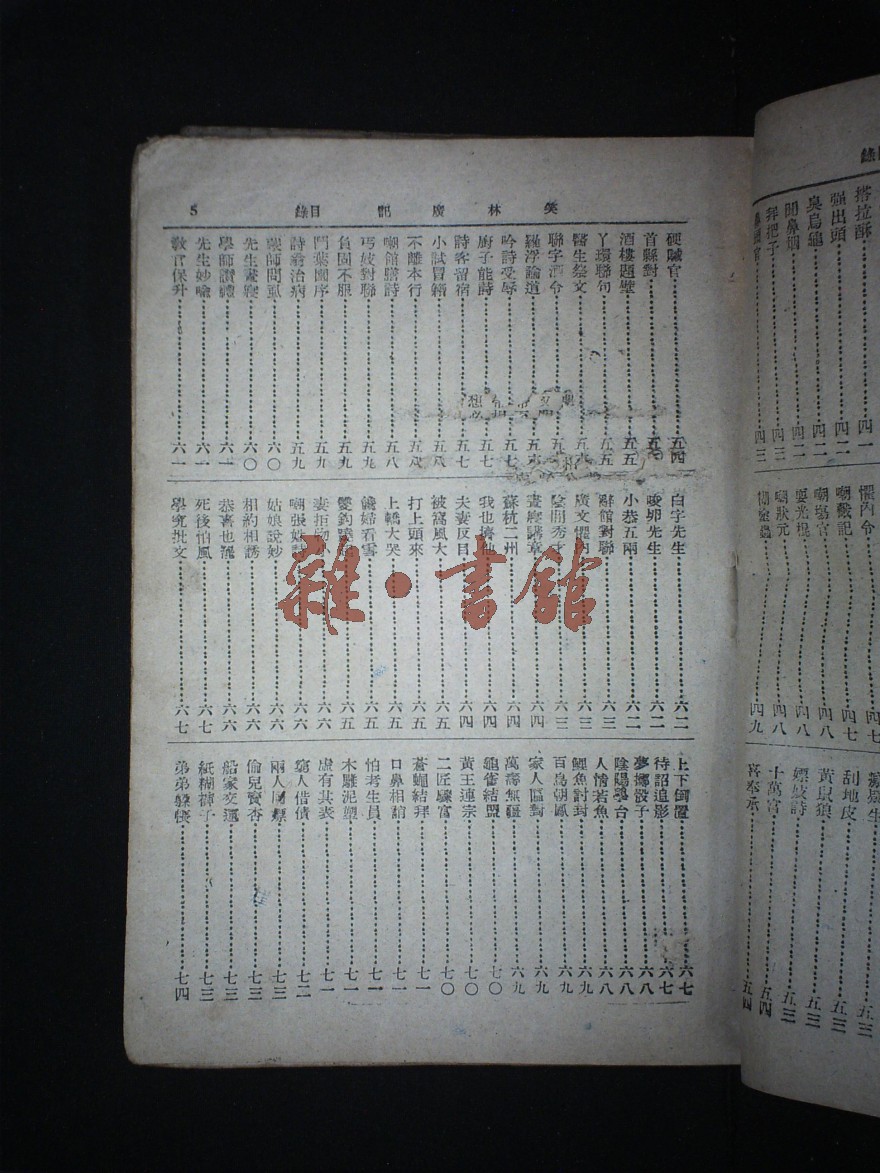 笑林廣記 目錄 5
硬贓官 五四
首縣對 五
酒樓題壁 五五
丫環聯句 五五
醫生祭文 五
聯字酒令 五
羅浮論道 五
吟詩受辱 五七
廚子能詩 五七
詩客留宿 五七
小試冒籍 五八
不離本行 五八
嘲館膳詩 五八
丐妓對聯 五九
負固不服 五九
鬥葉圖序 五九
詩翁治病 五九
業師問虱 六〇
先生晝寢 六〇
學師讚禮 六一
先生妙喻 六一
教官保升 六一
白字先生 六二
唆卵先生 六二
小恭五兩 六二
辭館對聯 六三
廣文懼內 六三
陰間秀才 六三
晝寢講章 六四
蘇杭二州 六四
我也擠他 六四
夫妻反目 六四
被窩風大 六五
打上頭來 六五
上轎大哭 六五
饞婦看雪 六五
六五
妻拒物小 六六
嘲張姓 六六
姑娘說妙 六六
相約相誘 六六
恭喜也罷 六六
死後怕風 六七
學究批文 六七
上下倒置 六七
待詔追影 六七
夢擲骰子 六八
陰陽學台 六八
人情若魚 六八
鯉魚討封 六九
百鳥朝鳳 六九
家人區對 六九
萬壽無疆 六九
龜雀結盟 七〇
黃王連宗 七〇
二匠驟富 七〇
蒼蠅結拜 七一
口鼻相誚 七一
怕考生員 七一
木雕泥塑 七一
虛有其表 七一
窮人借債 七二
兩人同嫖 七三
偷兒賣杏 七三
船家交運 七三
紙糊褲子 七三
弟弟躲後 七四
雜·書館
塔拉酥 四一
強出頭 四二
臭烏龜 四二
聞鼻烟 四二
拜把子 四三
官 四三
懼內令 四七
嘲戲記 四七
嘲武官 四八
耍光棍 四八
嘲狀元 四八
蟲 四九
五三
刮地皮 五三
黃鼠狼 五三
嫖妓詩 五三
十萬官 五四
喜奉承 五四